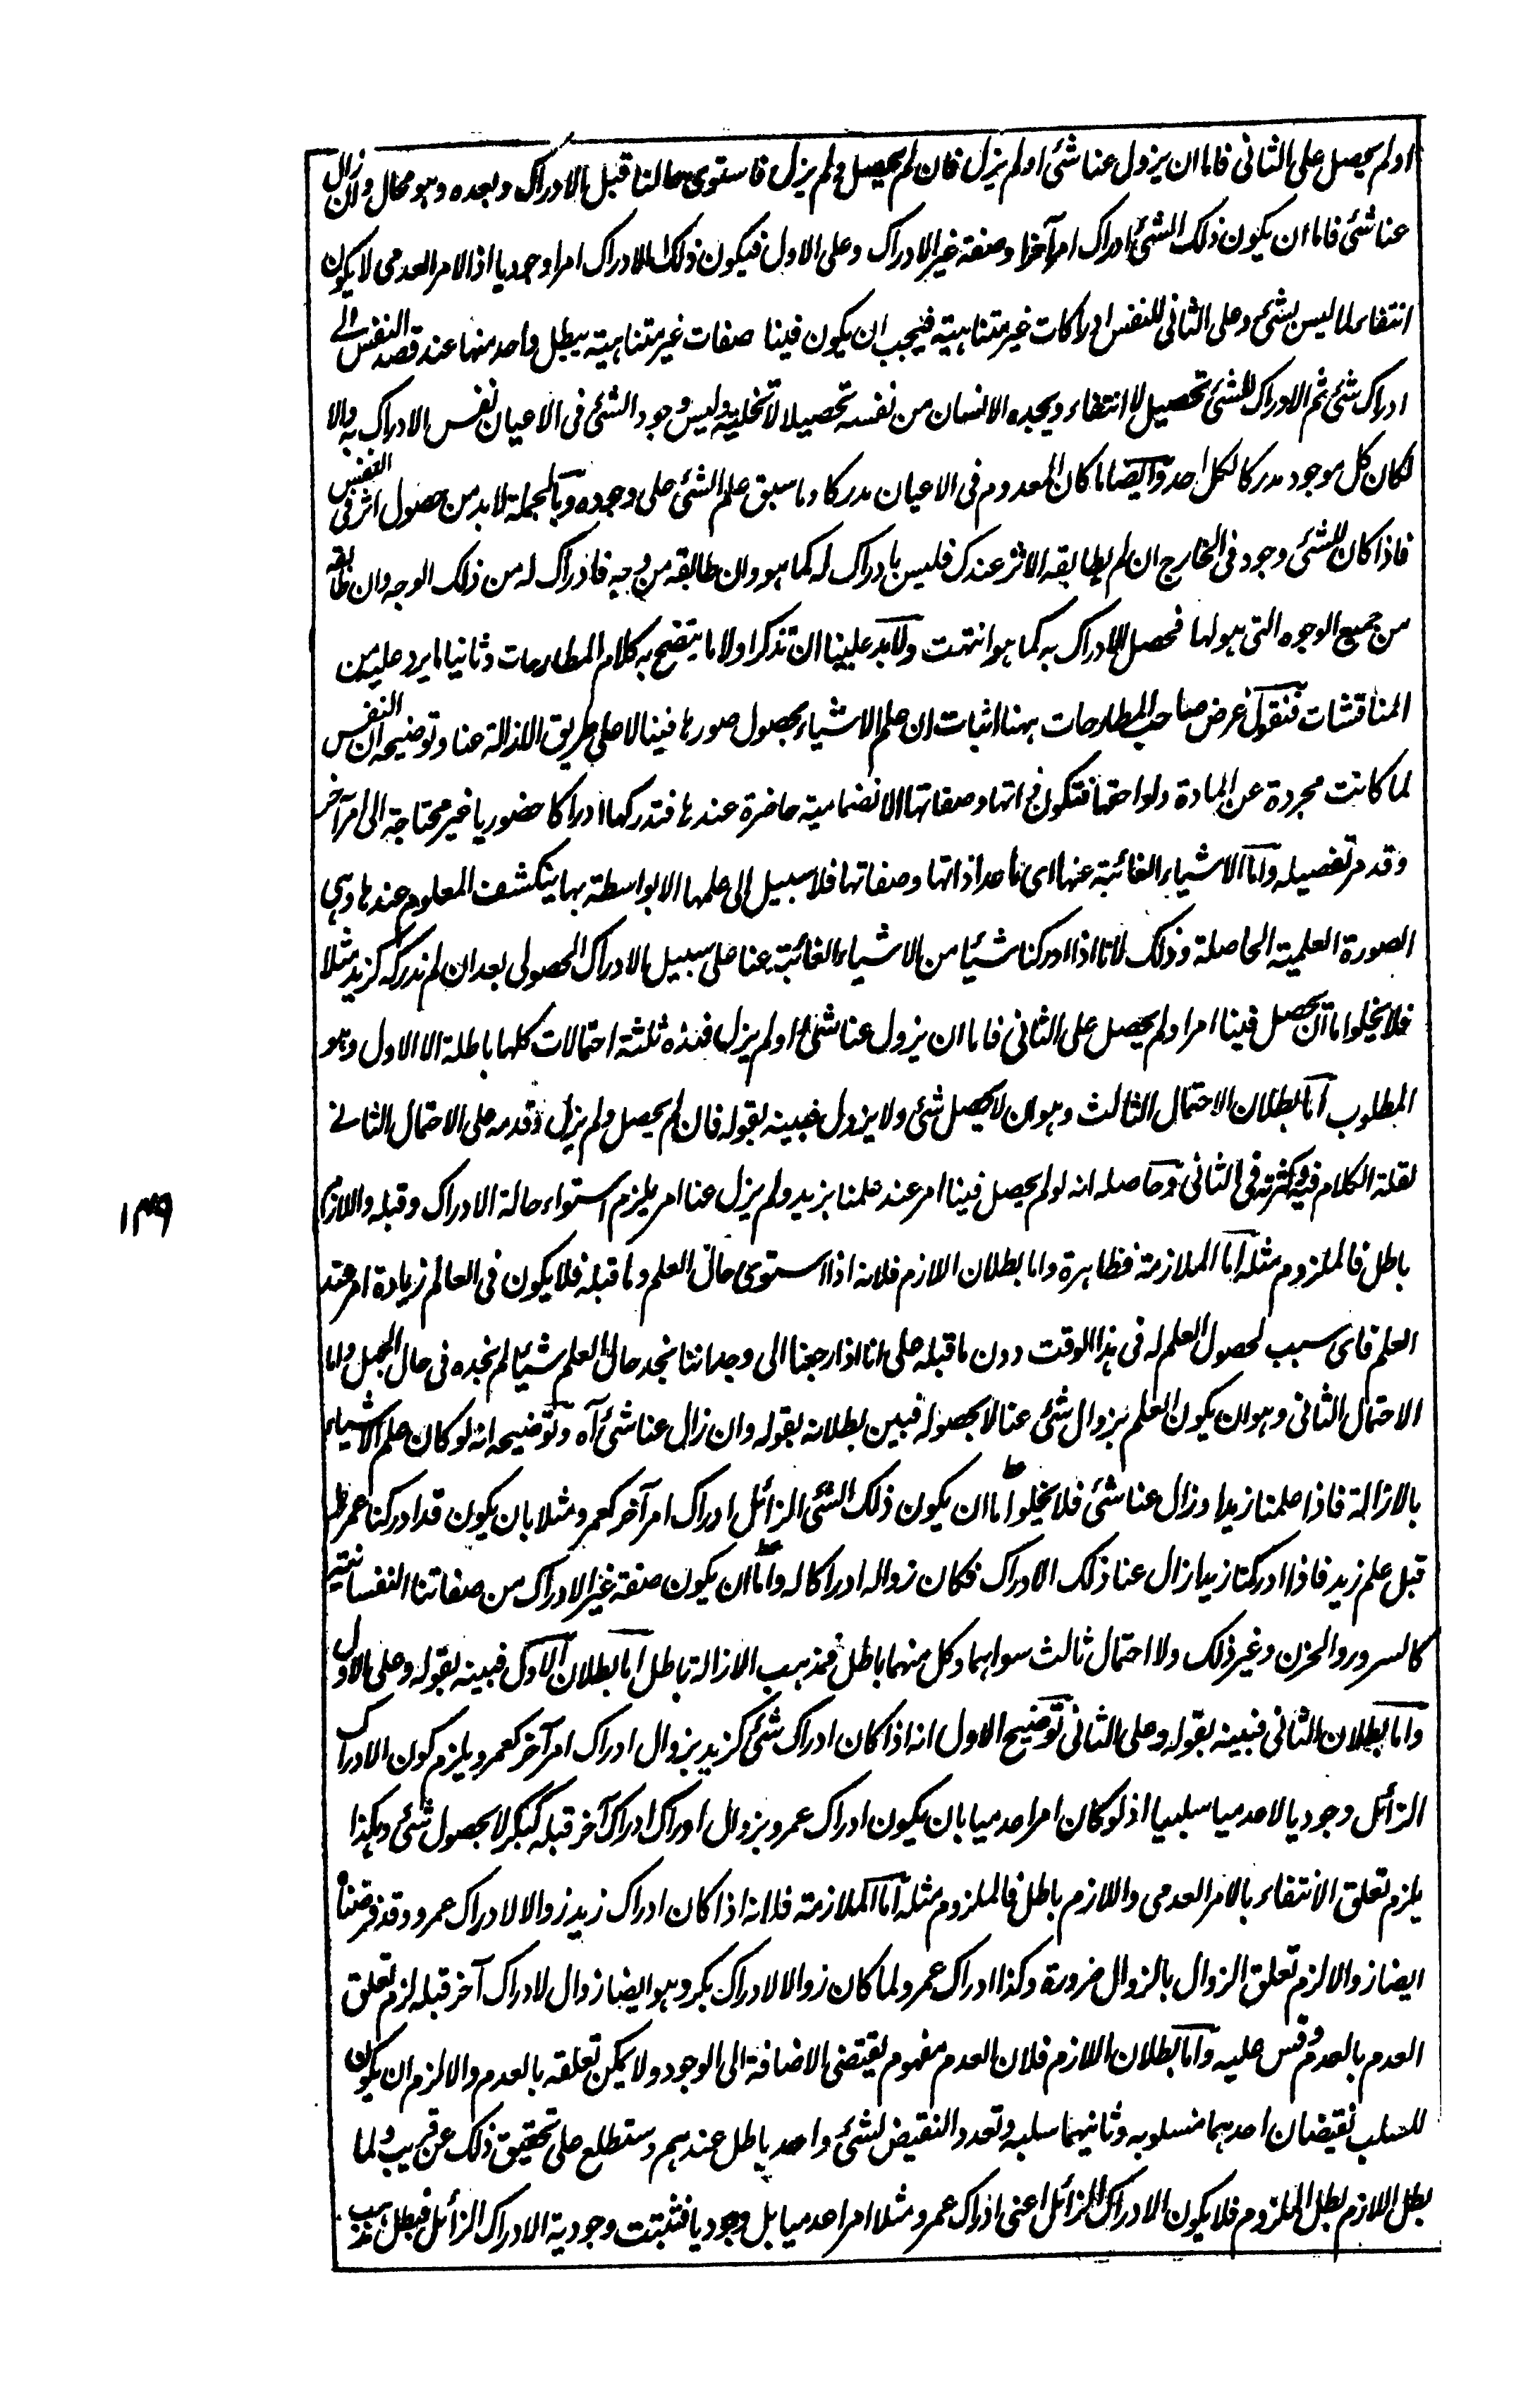 او لم يحصل على الثانى فاما ان يزول عنا شئ او لم يزل فان لم يحصل و لم يزل فاستوى حالنا قبل الادراك وبعده وهو محال وان زال
عنا شئ فاما ان يكون ذلك الشئ ادراك امر آخر او صفة غير الادراك وعلى الاول فيكون ذلك الادراك امرا وجوديا اذ الامر العدمى لا يكون
انتفاء لما ليس بشئ وعلى الثانى للنفس ادراكات غير متناهية فيجب ان يكون فينا صفات غير متناهية يبطل واحد منها عند قصد النفس الى
ادراك شئ ثم الادراك للشئ تحصيل لا انتفاء ويجده الانسان من نفسه تحصيلا لا تخلية وليس وجود الشئ فى الاعيان نفس الادراك به والا
لكان كل موجود مدركا لكل احد وايضا ما كان المعدوم فى الاعيان مدركا وما سبق علم الشئ على وجوده وبالجملة لا بد من حصول اثر فى النفس
فاذا كان للشئ وجود فى الخارج ان لم يطابقه الاثر عندك فليس بادراك له كما هو وان طابقه من وجه فادراك له من ذلك الوجه وان طابقه
من جميع الوجوه التى هو لها فحصل الادراك به كما هو انتهت ولا بد علينا ان نذكر اولا ما يتضح به كلام المطارحات وثانيا ما يرد عليه من
المناقشات فنقول غرض صاحب المطارحات ههنا اثبات ان علم الاشياء بحصول صورها فينا لا على طريق الازالة عنا وتوضيحه ان النفس
لما كانت مجردة عن المادة ولواحقها فتكون ذاتها وصفاتها الانضمامية حاضرة عندها فتدركها ادراكا حضوريا غير محتاجة الى امر آخر
وقد مر تفصيله واما الاشياء الغائبة عنها اى ما عدا ذاتها وصفاتها فلا سبيل الى علمها الا بواسطة بها ينكشف المعلوم عندها وهى
الصورة العلمية الحاصلة وذلك لانا اذا ادركنا شيئا من الاشياء الغائبة عنا على سبيل الادراك الحصولى بعد ان لم ندركه كزيد مثلا
فلا يخلو اما ان يحصل فينا امر او لم يحصل على الثانى فاما ان يزول عنا شئ او لم يزل فهذه ثلثة احتمالات كلها باطلة الا الاول وهو
المطلوب اما بطلان الاحتمال الثالث وهو ان لا يحصل شئ ولا يزول فبينه بقوله فان لم يحصل و لم يزل وقدمه على الاحتمال الثانى
لقلة الكلام فيه وكثرته فى الثانى وحاصله انه لو لم يحصل فينا امر عند علمنا بزيد ولم يزل عنا امر يلزم استواء حالة الادراك وقبله واللازم
باطل فالملزوم مثله اما الملازمة فظاهرة واما بطلان اللازم فلانه اذا استوى حال العلم وما قبله فلا يكون فى العالم زيادة امر عند
العلم فاى سبب لحصول العلم له فى هذا الوقت دون ما قبله على انا اذا رجعنا الى وجداننا نجد حال العلم شيئا لم نجده فى حال الجهل واما
الاحتمال الثانى وهو ان يكون العلم بزوال شئ عنا لا بحصوله فبين بطلانه بقوله وان زال عنا شئ آه وتوضيحه انه لو كان علم الاشياء
بالازالة فاذا علمنا زيدا وزال عنا شئ فلا يخلو اما ان يكون ذلك الشئ الزائل ادراك امر آخر كعمرو مثلا بان يكون قد ادركنا عمرا
قبل علم زيد فاذا ادركنا زيدا زال عنا ذلك الادراك فكان زواله ادراكا له واما ان يكون صفة غير الادراك من صفاتنا النفسانية
كالسرور والحزن وغير ذلك ولا احتمال ثالث سواهما وكل منهما باطل فمذهب الازالة باطل اما بطلان الاول فبينه بقوله وعلى الاول
واما بطلان الثانى فبينه بقوله وعلى الثانى توضيح الاول انه اذا كان ادراك شئ كزيد بزوال ادراك امر آخر كعمرو يلزم كون الادراك
الزائل وجوديا لا عدميا سلبيا اذ لو كان امرا عدميا بان يكون ادراك عمرو بزوال ادراك ادراك آخر قبله كبكر لا بحصول شئ وهكذا
يلزم تعلق الانتفاء بالامر العدمى واللازم باطل فالملزوم مثله اما الملازمة فلانه اذا كان ادراك زيد زوالا لادراك عمرو وقد فرضناه
ايضا زوالا لزم تعلق الزوال بالزوال ضرورة وكذا ادراك عمرو لما كان زوالا لادراك بكر وهو ايضا زوال لادراك آخر قبله لزم تعلق
العدم بالعدم وقس عليه واما بطلان اللازم فلان العدم مفهوم يقتضى الاضافة الى الوجود ولا يمكن تعلقه بالعدم والا لزم ان يكون
للسلب نقيضان احدهما مسلوبه وثانيهما سلبه وتعدد النقيض لشئ واحد باطل عندهم وستطلع على تحقيق ذلك عن قريب ولما
بطل اللازم بطل الملزوم فلا يكون الادراك الزائل اعنى ادراك عمرو مثلا امرا عدميا بل وجوديا فثبتت وجودية الادراك الزائل فبطل مذهب
١٣٩